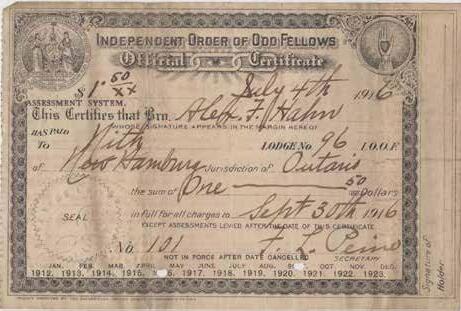 INDEPENDENT ORDER OF ODD FELLOWS
Official Certificate
$1.50/xx July 4th 1916
ASSESSMENT SYSTEM.
This Certifies that Bro. Alex. F. Hahn
WHOSE SIGNATURE APPEARS IN THE MARGIN HEREOF
HAS PAID TO Wilh LODGE NO. 96 I.O.O.F.
of New Hamburg Jurisdiction of Ontario
the sum of One 50 Dollars
SEAL in full for all charges to Sept 30th 1916
EXCEPT ASSESSMENTS LEVIED AFTER THE DATE OF THIS CERTIFICATE
No. 101 SECRETARY
NOT IN FORCE AFTER DATE CANCELLED
JAN. FEB. MAR. APRIL MAY JUNE JULY AUG. OCT NOV. DEC.
1912. 1913. 1914. 1915. 1917. 1918. 1919. 1920. 1921. 1922. 1923.
Signature of Holder